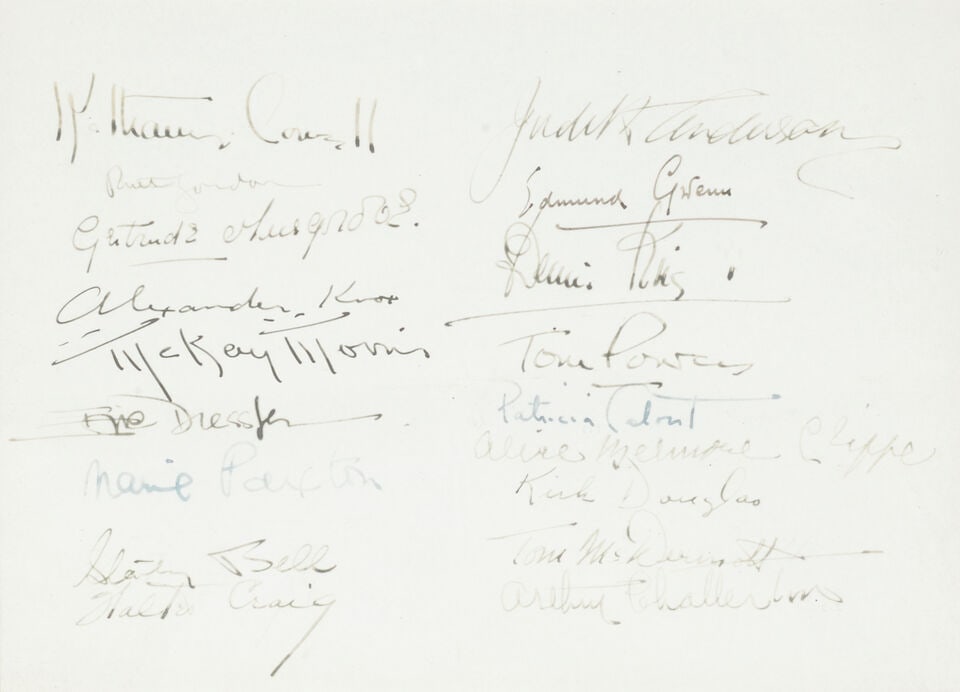 Katharine Cornell
Ruth Gordon
Gertrude Musgrove.
Alexander Knox
McKay Morris
Eric Dressler
Marie Paxton
Stanley Bell
Walter Craig
Judith Anderson
Edmund Gwenn
Dennis King
Tom Powers
Patricia Calvert
Alice Belmore Cliffe
Kirk Douglas
Tom McDermott
Arthur Chatterton